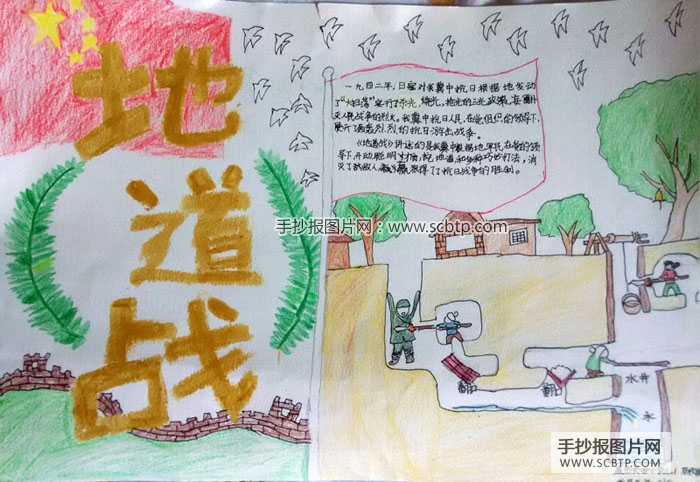 地
道
战
一九四二年，日寇对我冀中抗日根据地发动
了"大扫荡"实行了杀光，烧光，抢光的三光政策，妄
灭人民战争的烈火。我冀中抗日人民，在党组织的领导下，
展开了轰轰烈烈的抗日游击战争。
《地道战》讲述的是我冀中根据地军民在党的领
导下，开动脑 明 对 挖地道 种巧妙打法，消
灭了敌人 获得了了抗日战争的胜利。
手抄报图片网：www.scbtp.com
翻口
翻口
水井
水
手抄报图片网
WWW.SCBTP.COM